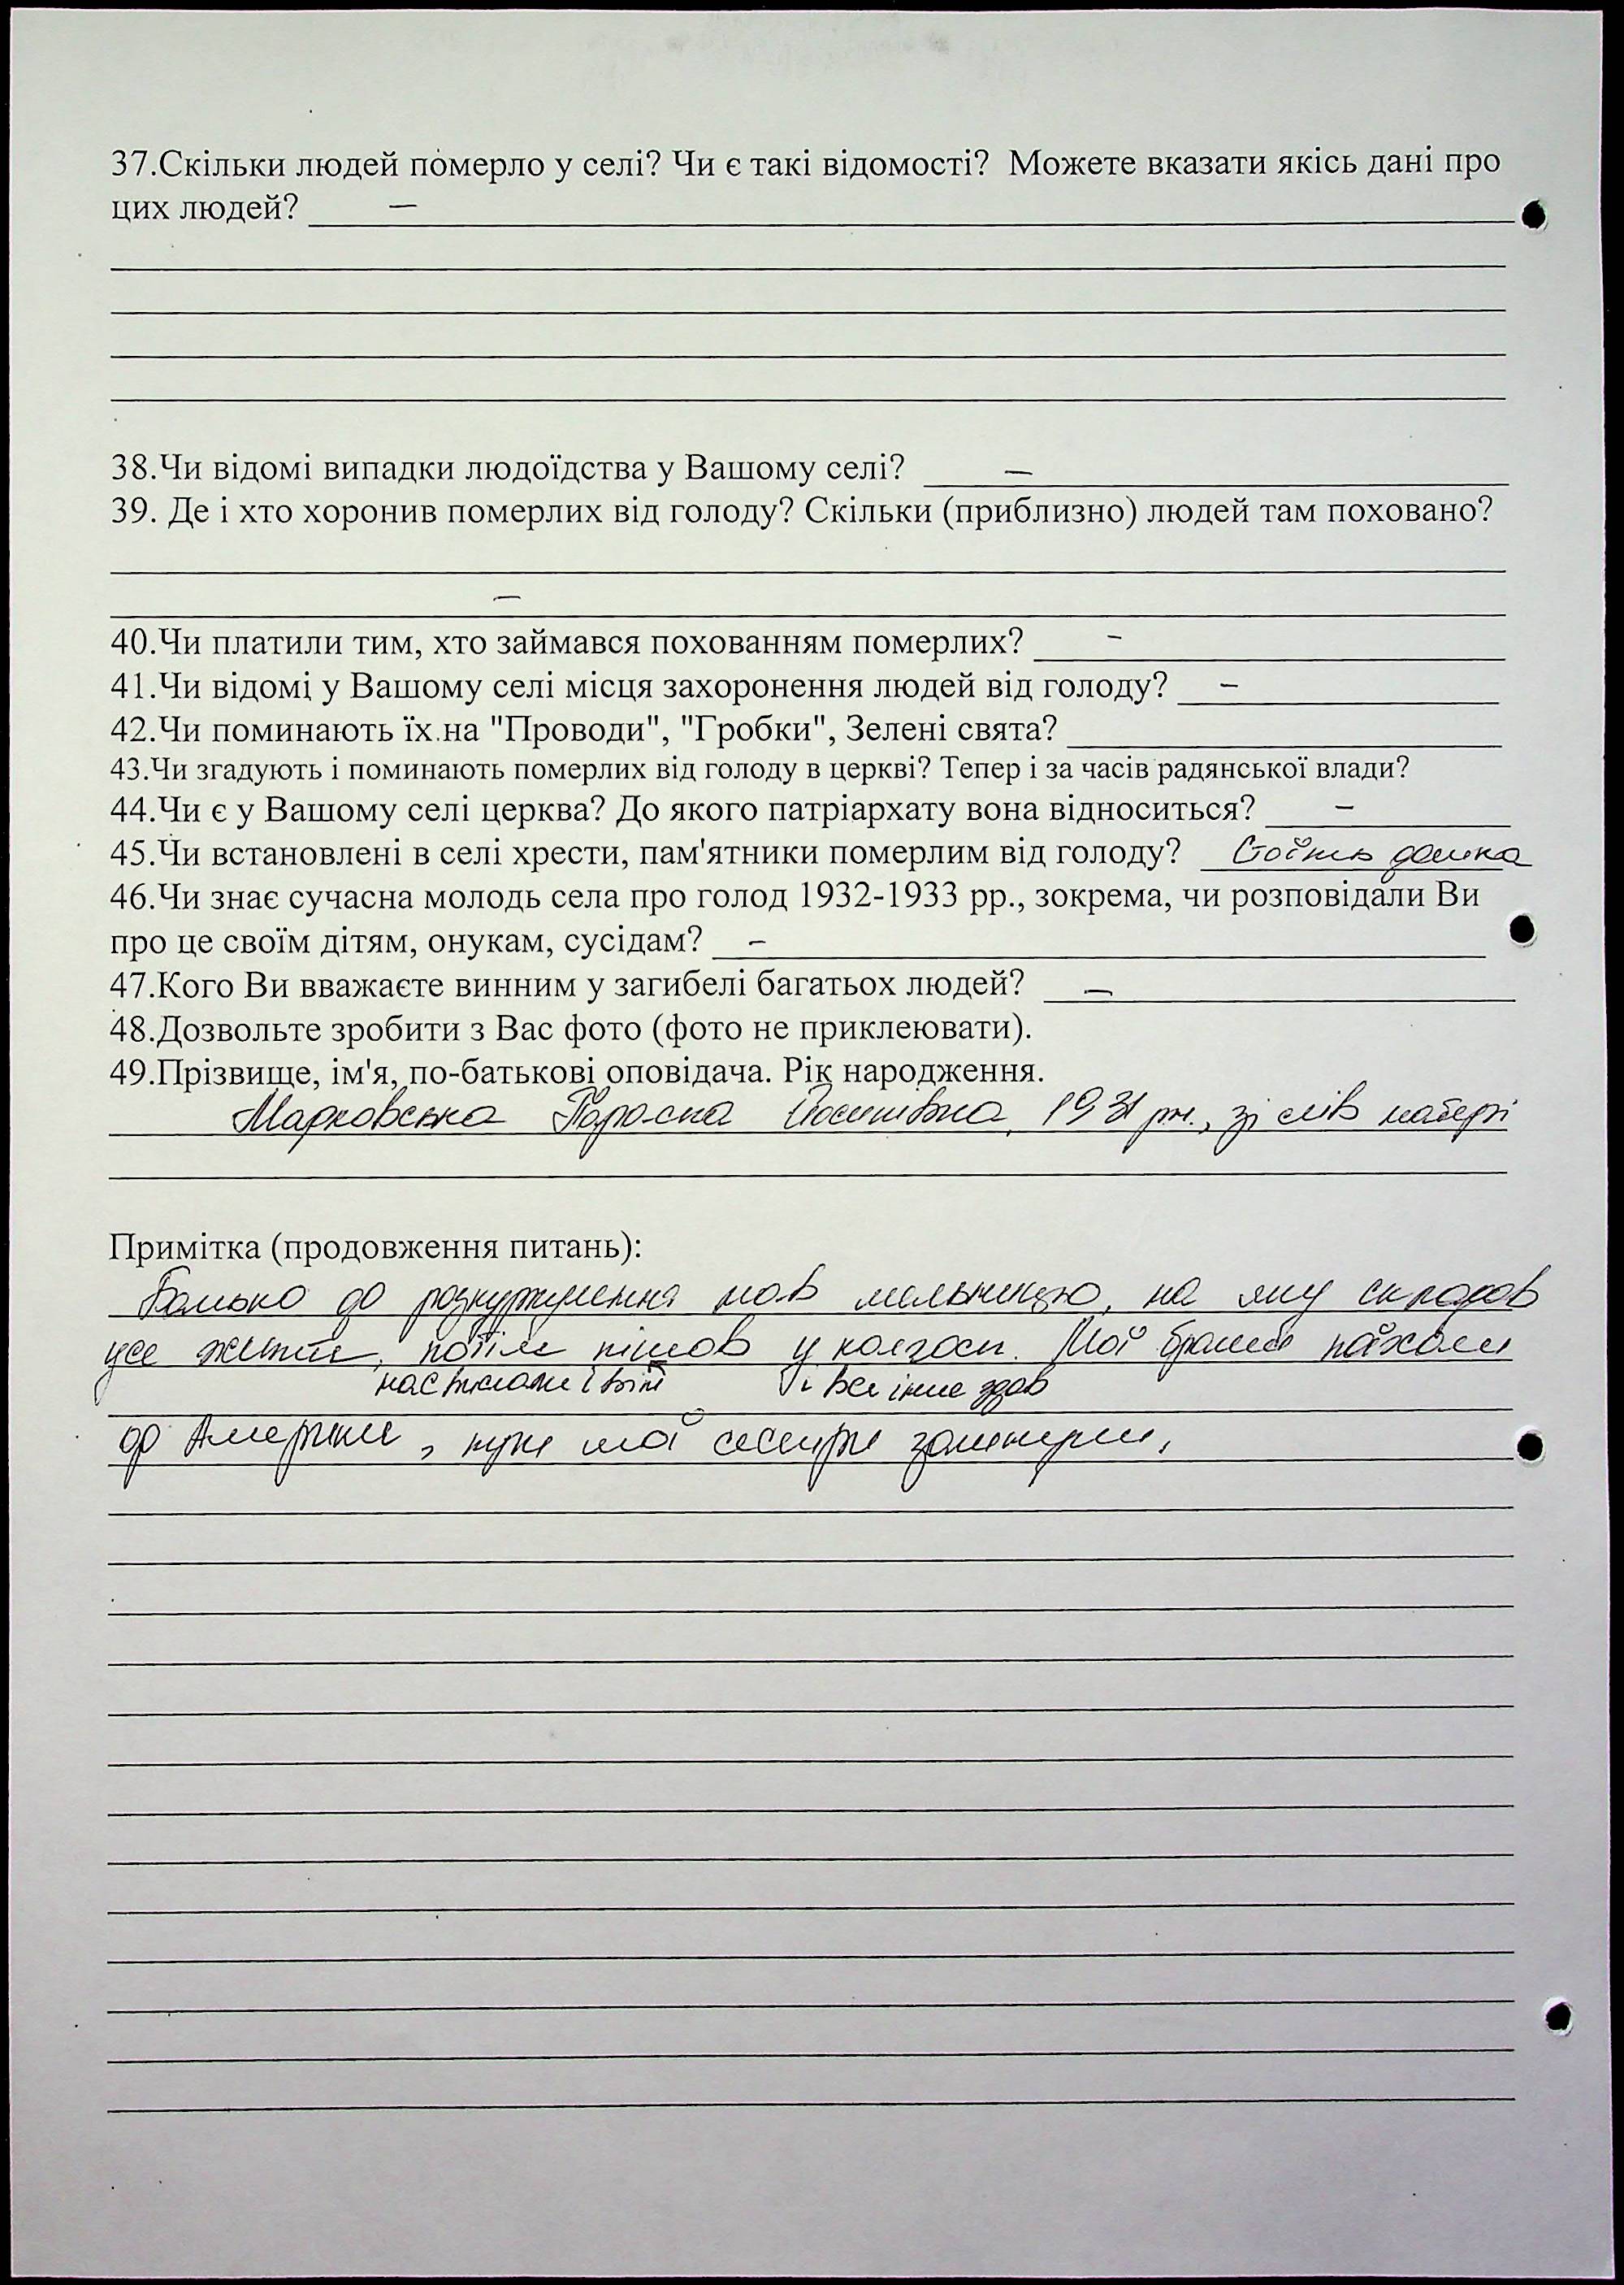 37.Скільки людей померло у селі? Чи є такі відомості? Можете вказати якісь дані про
цих людей? –
38.Чи відомі випадки людоїдства у Вашому селі? –
39. Де і хто хоронив померлих від голоду? Скільки (приблизно) людей там поховано?
–
40.Чи платили тим, хто займався похованням померлих? –
41.Чи відомі у Вашому селі місця захоронення людей від голоду? –
42.Чи поминають їх на "Проводи", "Гробки", Зелені свята?
43.Чи згадують і поминають померлих від голоду в церкві? Тепер і за часів радянської влади?
44.Чи є у Вашому селі церква? До якого патріархату вона відноситься? –
45.Чи встановлені в селі хрести, пам'ятники померлим від голоду? Стоїть дошка
46.Чи знає сучасна молодь села про голод 1932-1933 рр., зокрема, чи розповідали Ви
про це своїм дітям, онукам, сусідам? –
47.Кого Ви вважаєте винним у загибелі багатьох людей? –
48.Дозвольте зробити з Вас фото (фото не приклеювати).
49.Прізвище, ім'я, по-батькові оповідача. Рік народження.
Марковська Параска Йосипівна, 1931 рн., зі слів матері
Примітка (продовження питань):
Батько до розкуркулення мав мельницю, на яку складав
усе життя, потім пішов у колгосп. Мої брати поїхали
нас вислали і він і все інше здав
до Америки, тут мої сестри залишили.